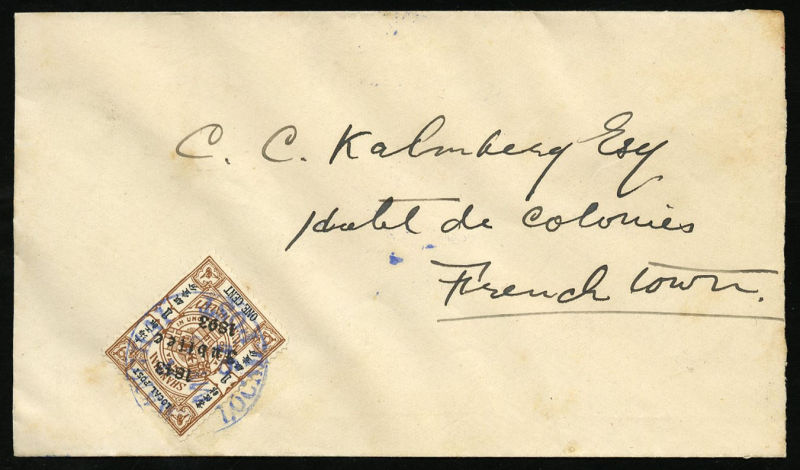 C. C. Kalmberg Esq
Hotel de Colonies
French Town.
ONE CENT
1843
Jubilee
1893
SHANGHAI
LOCAL POST
LOCAL